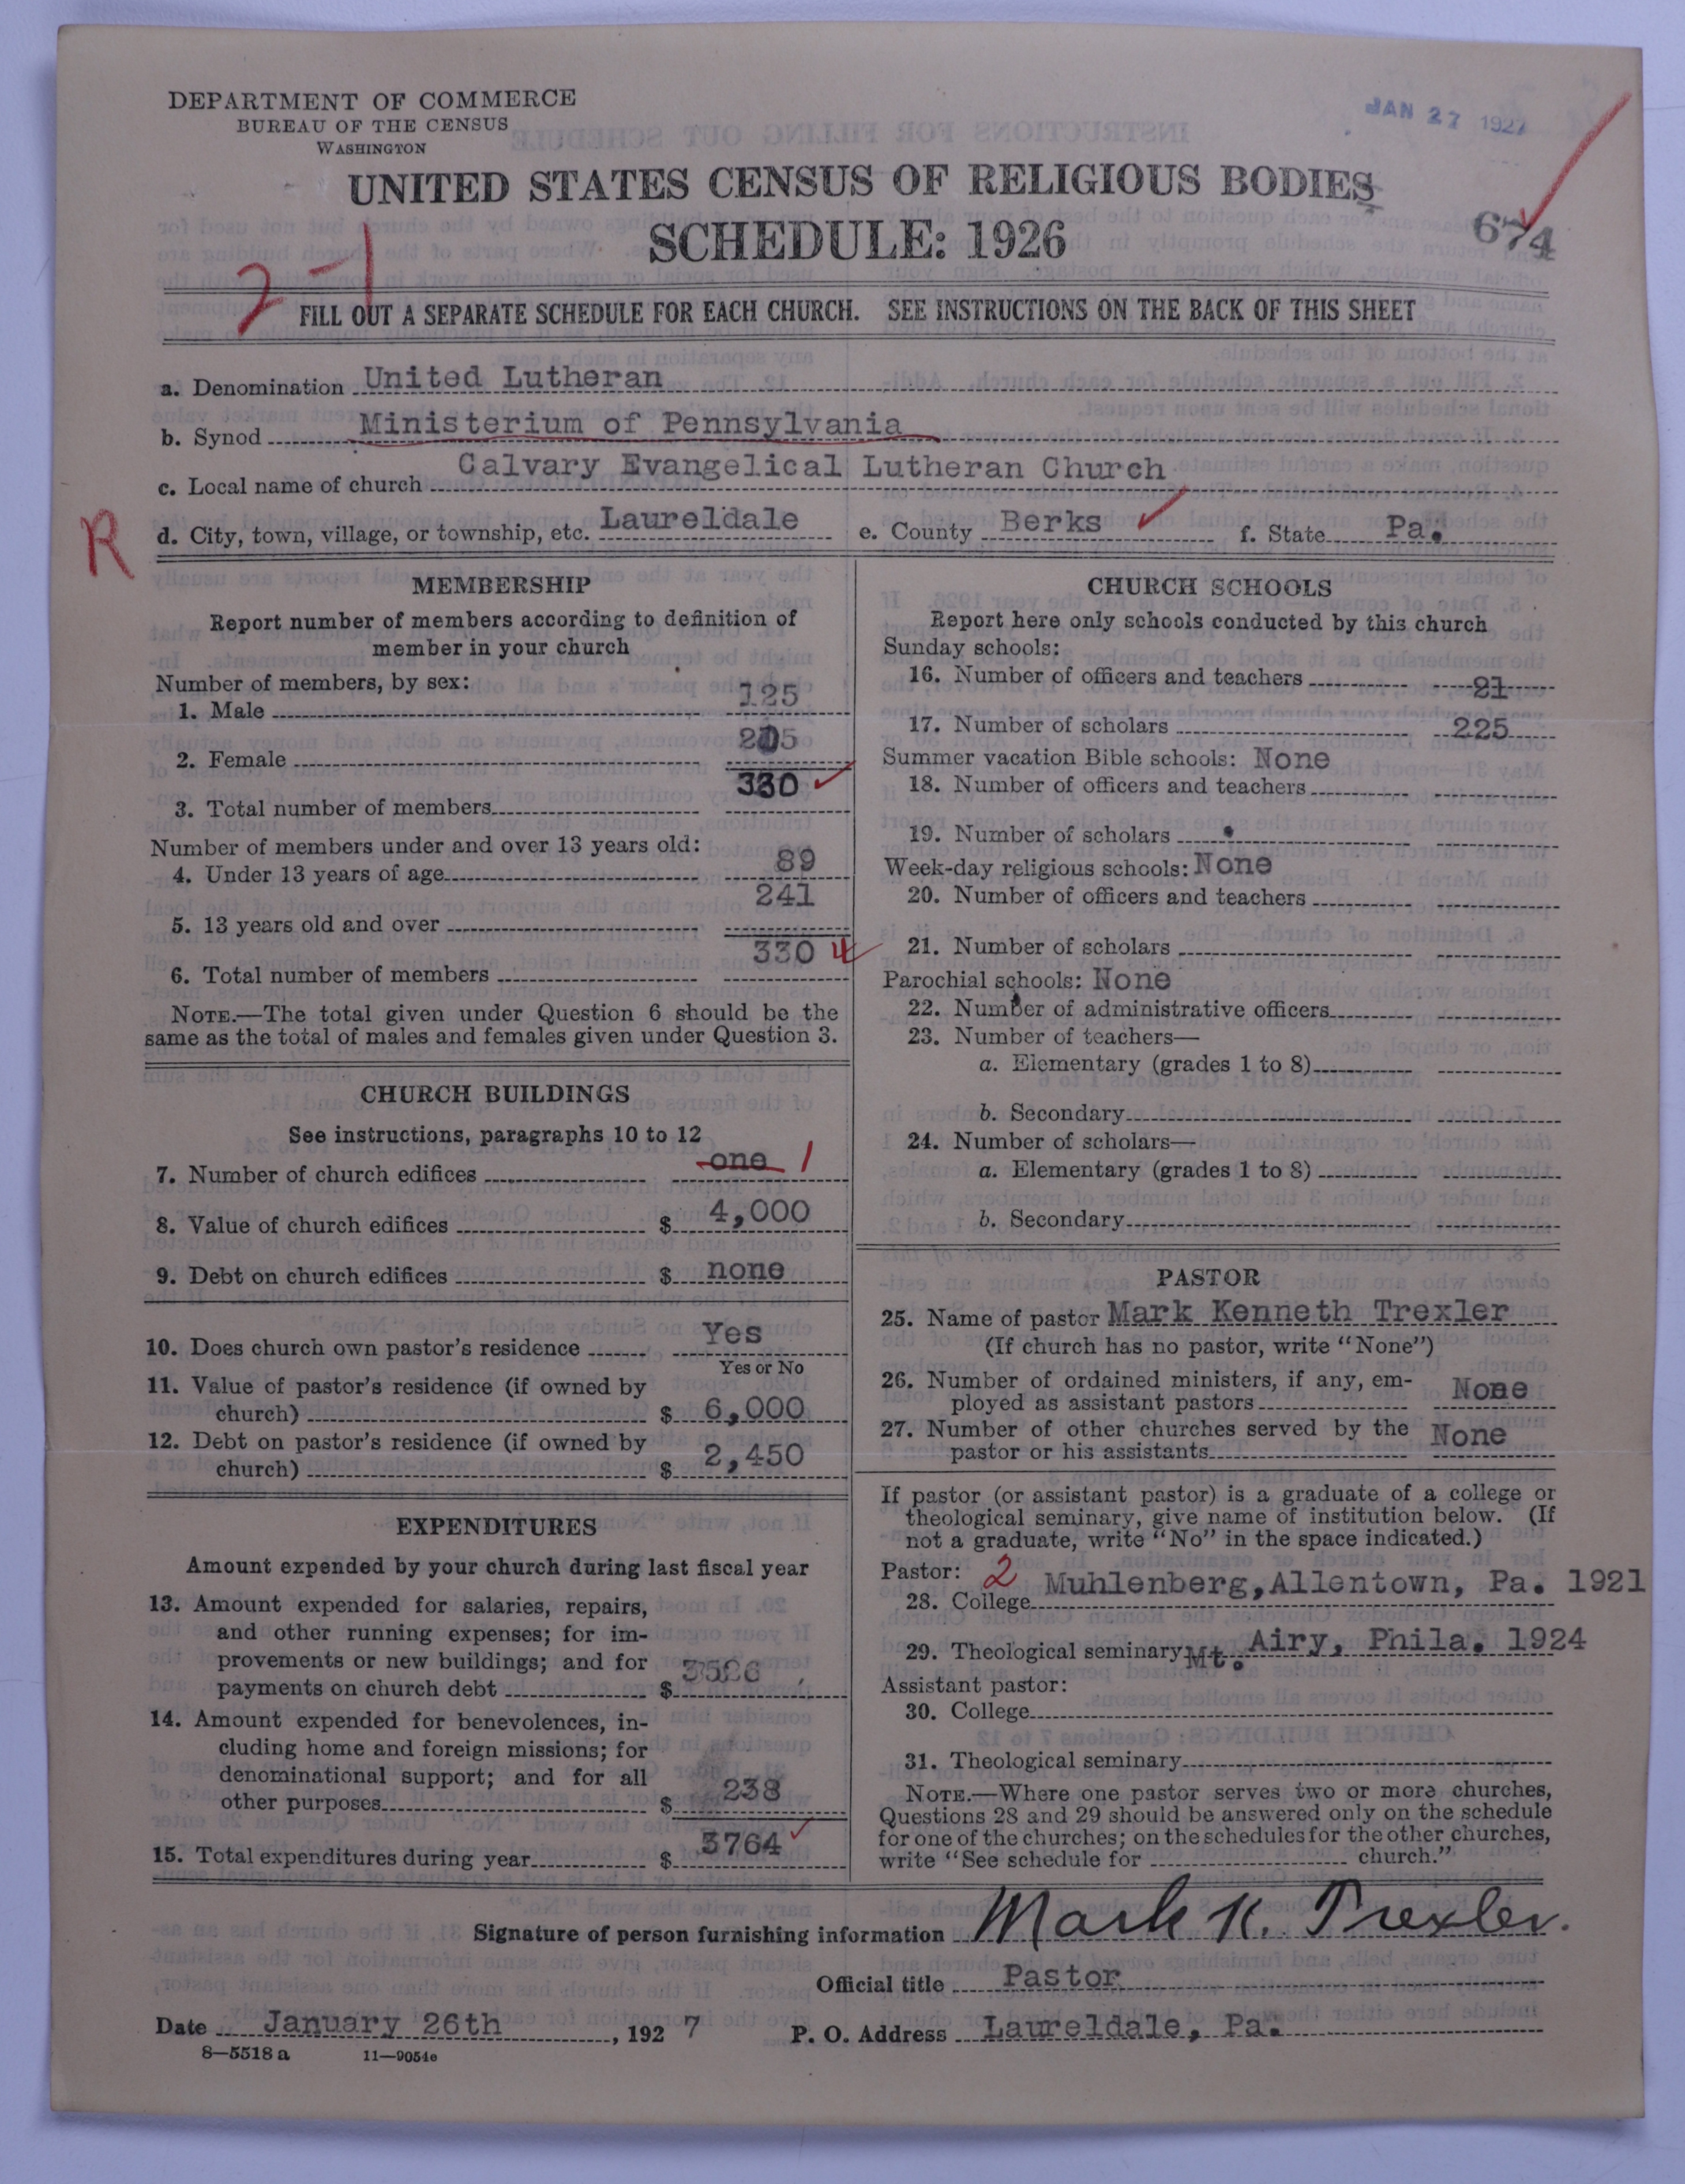 DEPARTMENT OF COMMERCE
BUREAU OF THE CENSUS
WASHINGTON
JAN 27 1927
UNITED STATES CENSUS OF RELIGIOUS BODIES
SCHEDULE: 1926
674
2-1
FILL OUT A SEPARATE SCHEDULE FOR EACH CHURCH. SEE INSTRUCTIONS ON THE BACK OF THIS SHEET
a. Denomination United Lutheran
b. Synod Ministerium of Pennsylvania
c. Local name of church Calvary Evangelical Lutheran Church
R
d. City, town, village, or township, etc. Laureldale e. County Berks f. State Pa.
MEMBERSHIP
Report number of members according to definition of
member in your church
Number of members, by sex:
1. Male 125
2. Female 205
3. Total number of members 330
Number of members under and over 13 years old:
4. Under 13 years of age 89
5. 13 years old and over 241
6. Total number of members 330 4
NOTE.—The total given under Question 6 should be the
same as the total of males and females given under Question 3.
CHURCH BUILDINGS
See instructions, paragraphs 10 to 12
7. Number of church edifices one 1
8. Value of church edifices $ 4,000
9. Debt on church edifices $ none
10. Does church own pastor's residence Yes
Yes or No
11. Value of pastor's residence (if owned by
church) $ 6,000
12. Debt on pastor's residence (if owned by
church) $ 2,450
EXPENDITURES
Amount expended by your church during last fiscal year
13. Amount expended for salaries, repairs,
and other running expenses; for im-
provements or new buildings; and for
payments on church debt $ 3526
14. Amount expended for benevolences, in-
cluding home and foreign missions; for
denominational support; and for all
other purposes $ 238
15. Total expenditures during year $ 3764
CHURCH SCHOOLS
Report here only schools conducted by this church
Sunday schools:
16. Number of officers and teachers 21
17. Number of scholars 225
Summer vacation Bible schools: None
18. Number of officers and teachers
19. Number of scholars
Week-day religious schools: None
20. Number of officers and teachers
21. Number of scholars
Parochial schools: None
22. Number of administrative officers
23. Number of teachers—
a. Elementary (grades 1 to 8)
b. Secondary
24. Number of scholars—
a. Elementary (grades 1 to 8)
b. Secondary
PASTOR
25. Name of pastor Mark Kenneth Trexler
(If church has no pastor, write "None")
26. Number of ordained ministers, if any, em-
ployed as assistant pastors None
27. Number of other churches served by the
pastor or his assistants None
If pastor (or assistant pastor) is a graduate of a college or
theological seminary, give name of institution below. (If
not a graduate, write "No" in the space indicated.)
Pastor: 2
28. College Muhlenberg, Allentown, Pa. 1921
29. Theological seminary Mt. Airy, Phila. 1924
Assistant pastor:
30. College
31. Theological seminary
NOTE.—Where one pastor serves two or more churches,
Questions 28 and 29 should be answered only on the schedule
for one of the churches; on the schedules for the other churches,
write "See schedule for church."
Signature of person furnishing information Mark K. Trexler.
Official title Pastor
Date January 26th, 1927 P. O. Address Laureldale, Pa.
8—5518 a 11—9054e